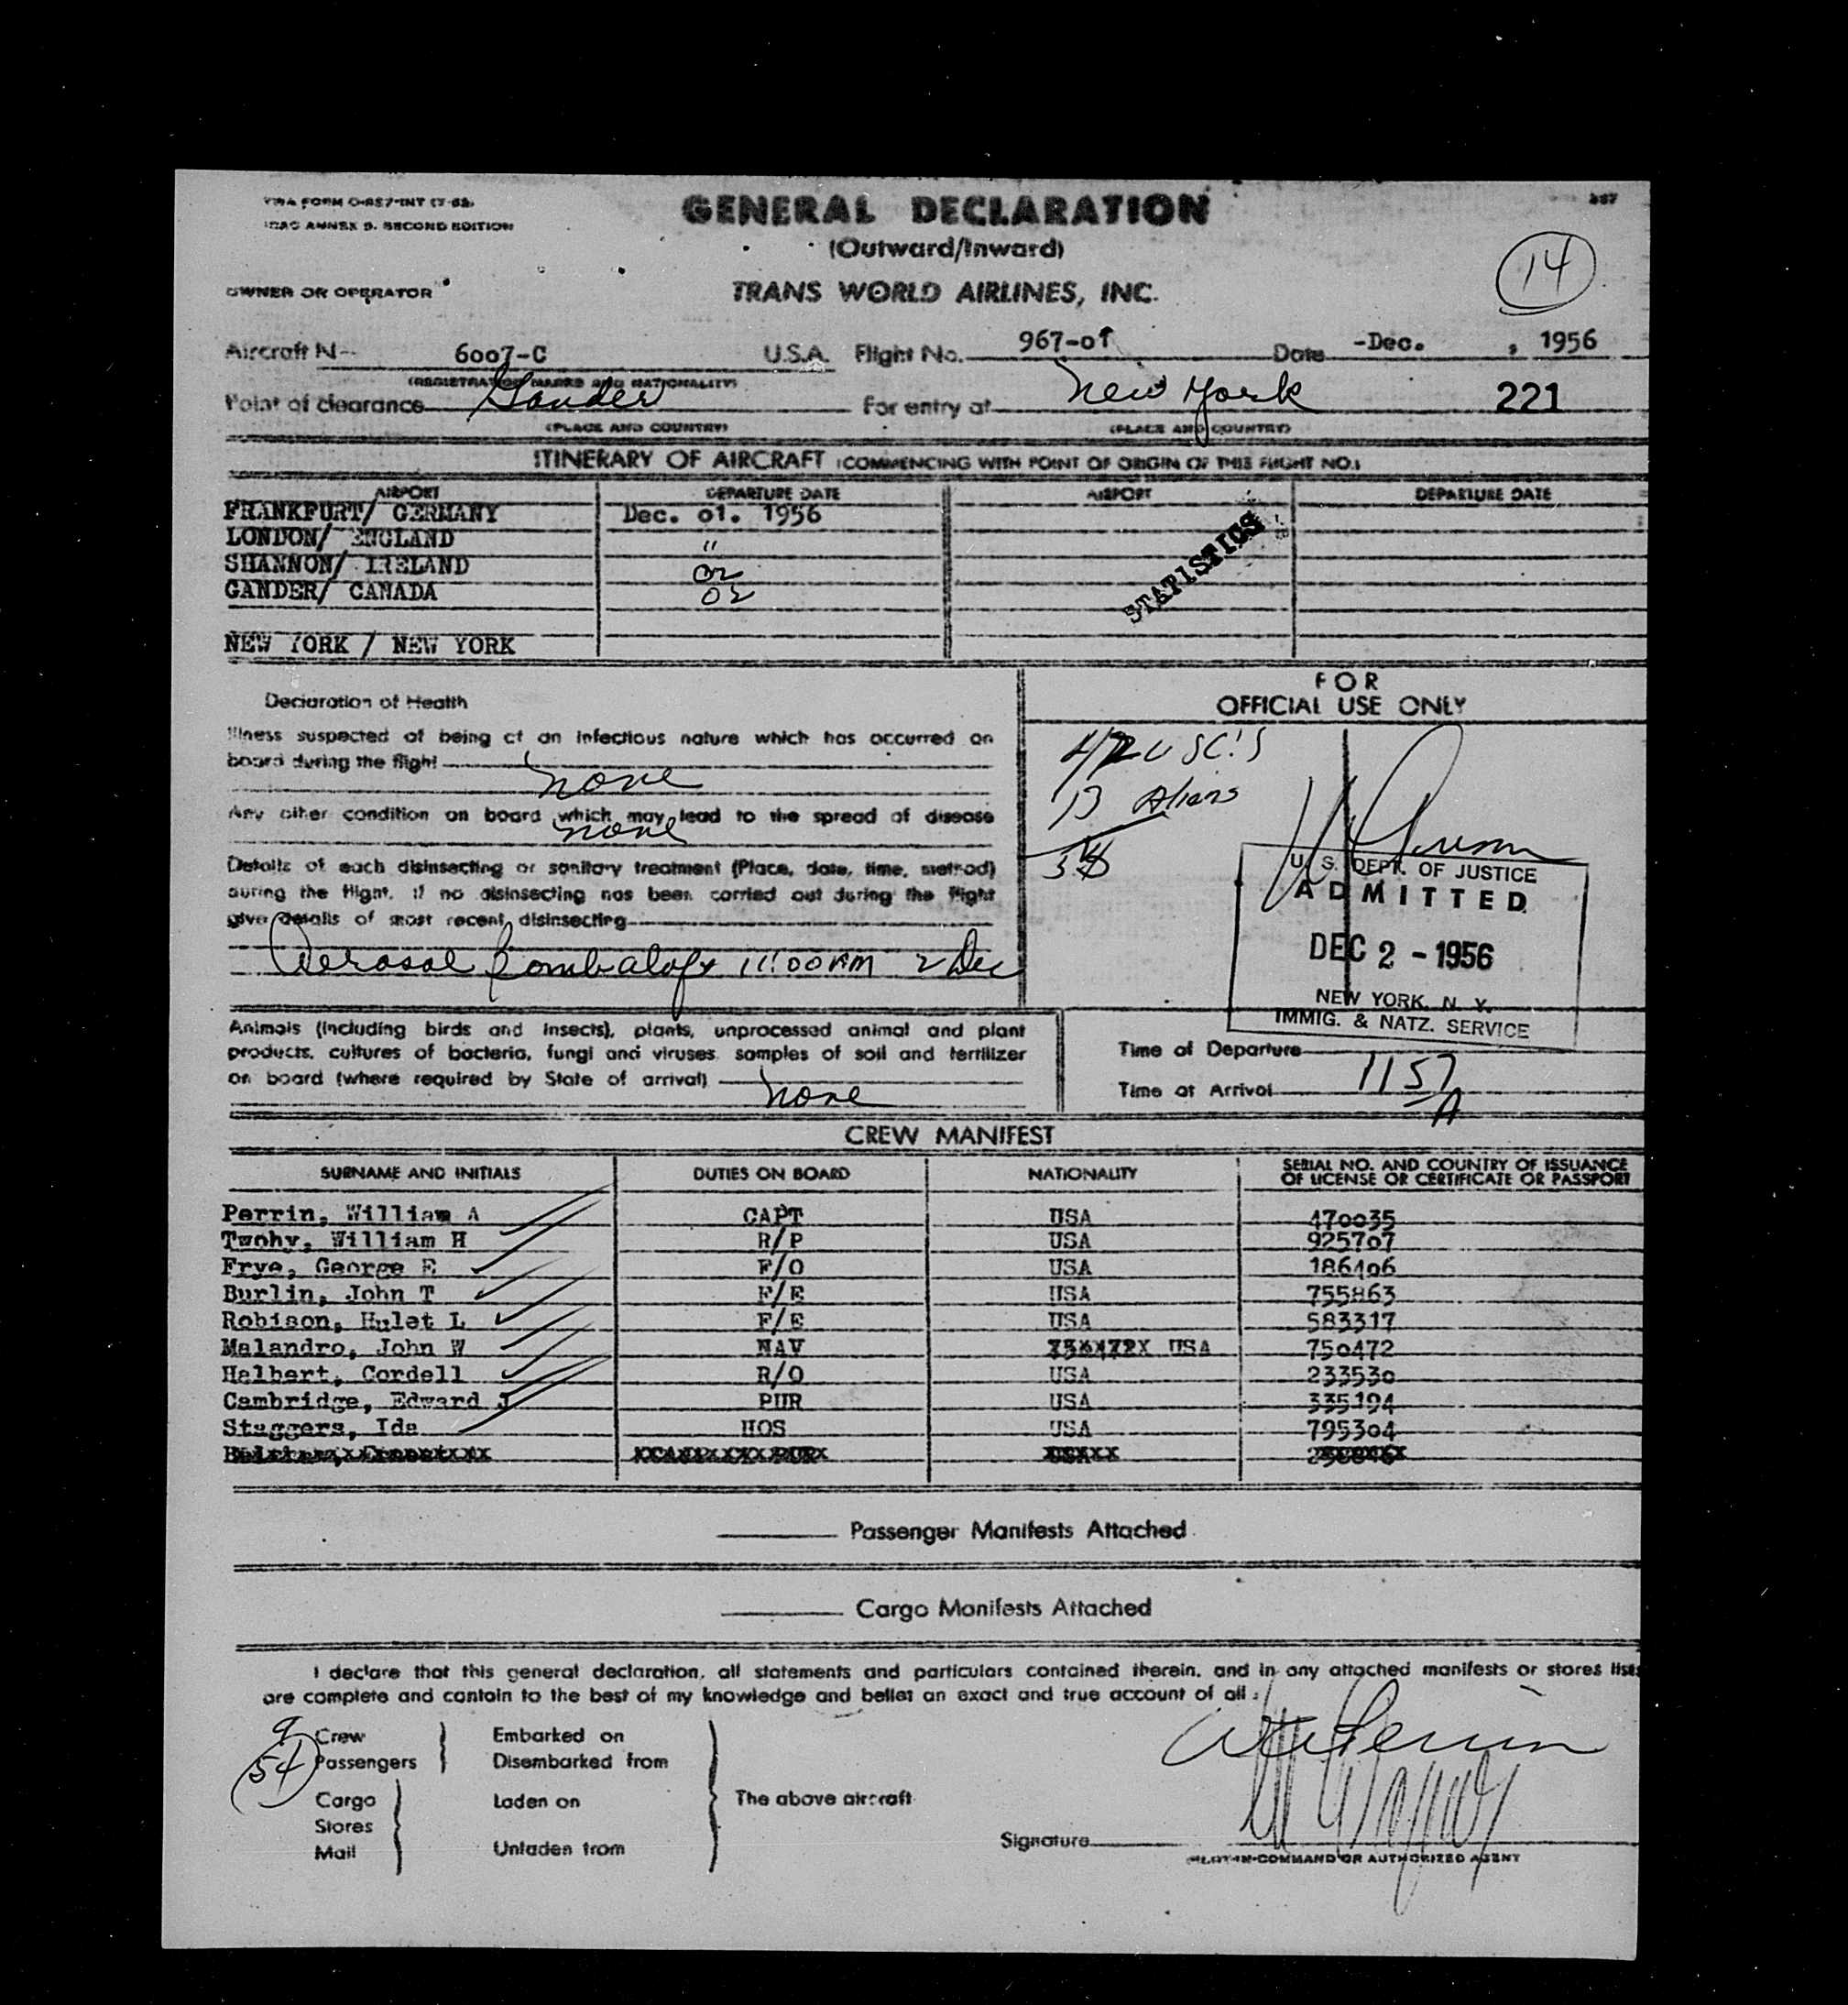 TWA FORM O-857-INT (7-52)
ICAO ANNEX 9. SECOND EDITION
GENERAL DECLARATION
(Outward/Inward)
14
OWNER OR OPERATOR
TRANS WORLD AIRLINES, INC.
Aircraft N- 6007-C U.S.A. Flight No. 967-01 Date -Dec. , 1956
(REGISTRATION MARKS AND NATIONALITY)
Point of clearance Gander For entry at New York 221
(PLACE AND COUNTRY) (PLACE AND COUNTRY)
ITINERARY OF AIRCRAFT (COMMENCING WITH POINT OF ORIGIN OF THIS FLIGHT NO.)
AIRPORT DEPARTURE DATE AIRPORT DEPARTURE DATE
FRANKFURT/ GERMANY Dec. 01. 1956
LONDON/ ENGLAND "
SHANNON/ IRELAND 02
GANDER/ CANADA 02
STATISTICS
NEW YORK / NEW YORK
Declaration of Health
Illness suspected of being of an infectious nature which has occurred on
board during the flight
none
Any other condition on board which may lead to the spread of disease
none
Details of each disinsecting or sanitary treatment (Place, date, time, method)
during the flight. If no disinsecting has been carried out during the flight
give details of most recent disinsecting
Aerosol 11:00 AM 2 Dec
FOR
OFFICIAL USE ONLY
USC'S
13 Aliens
U. S. DEPT. OF JUSTICE
ADMITTED
DEC 2 - 1956
NEW YORK, N. Y.
IMMIG. & NATZ. SERVICE
Animals (including birds and insects), plants, unprocessed animal and plant
products, cultures of bacteria, fungi and viruses, samples of soil and fertilizer
on board (where required by State of arrival)
none
Time of Departure
Time of Arrival 1157 A
CREW MANIFEST
SURNAME AND INITIALS DUTIES ON BOARD NATIONALITY SERIAL NO. AND COUNTRY OF ISSUANCE
OF LICENSE OR CERTIFICATE OR PASSPORT
Perrin, William A CAPT USA 470035
Twohy, William H R/P USA 925707
Frye, George E F/O USA 186406
Burlin, John T F/E USA 755863
Robison, Hulet L F/E USA 583317
Malandro, John W NAV USA 750472
Halbert, Cordell R/O USA 233530
Cambridge, Edward J PUR USA 335194
Staggers, Ida HOS USA 795304
Passenger Manifests Attached
Cargo Manifests Attached
I declare that this general declaration, all statements and particulars contained therein, and in any attached manifests or stores lists
are complete and contain to the best of my knowledge and belief an exact and true account of all :
9 Crew Embarked on
54 Passengers Disembarked from
Cargo Laden on The above aircraft
Stores
Mail Unladen from
WA Perrin
Signature
PILOT-IN-COMMAND OR AUTHORIZED AGENT